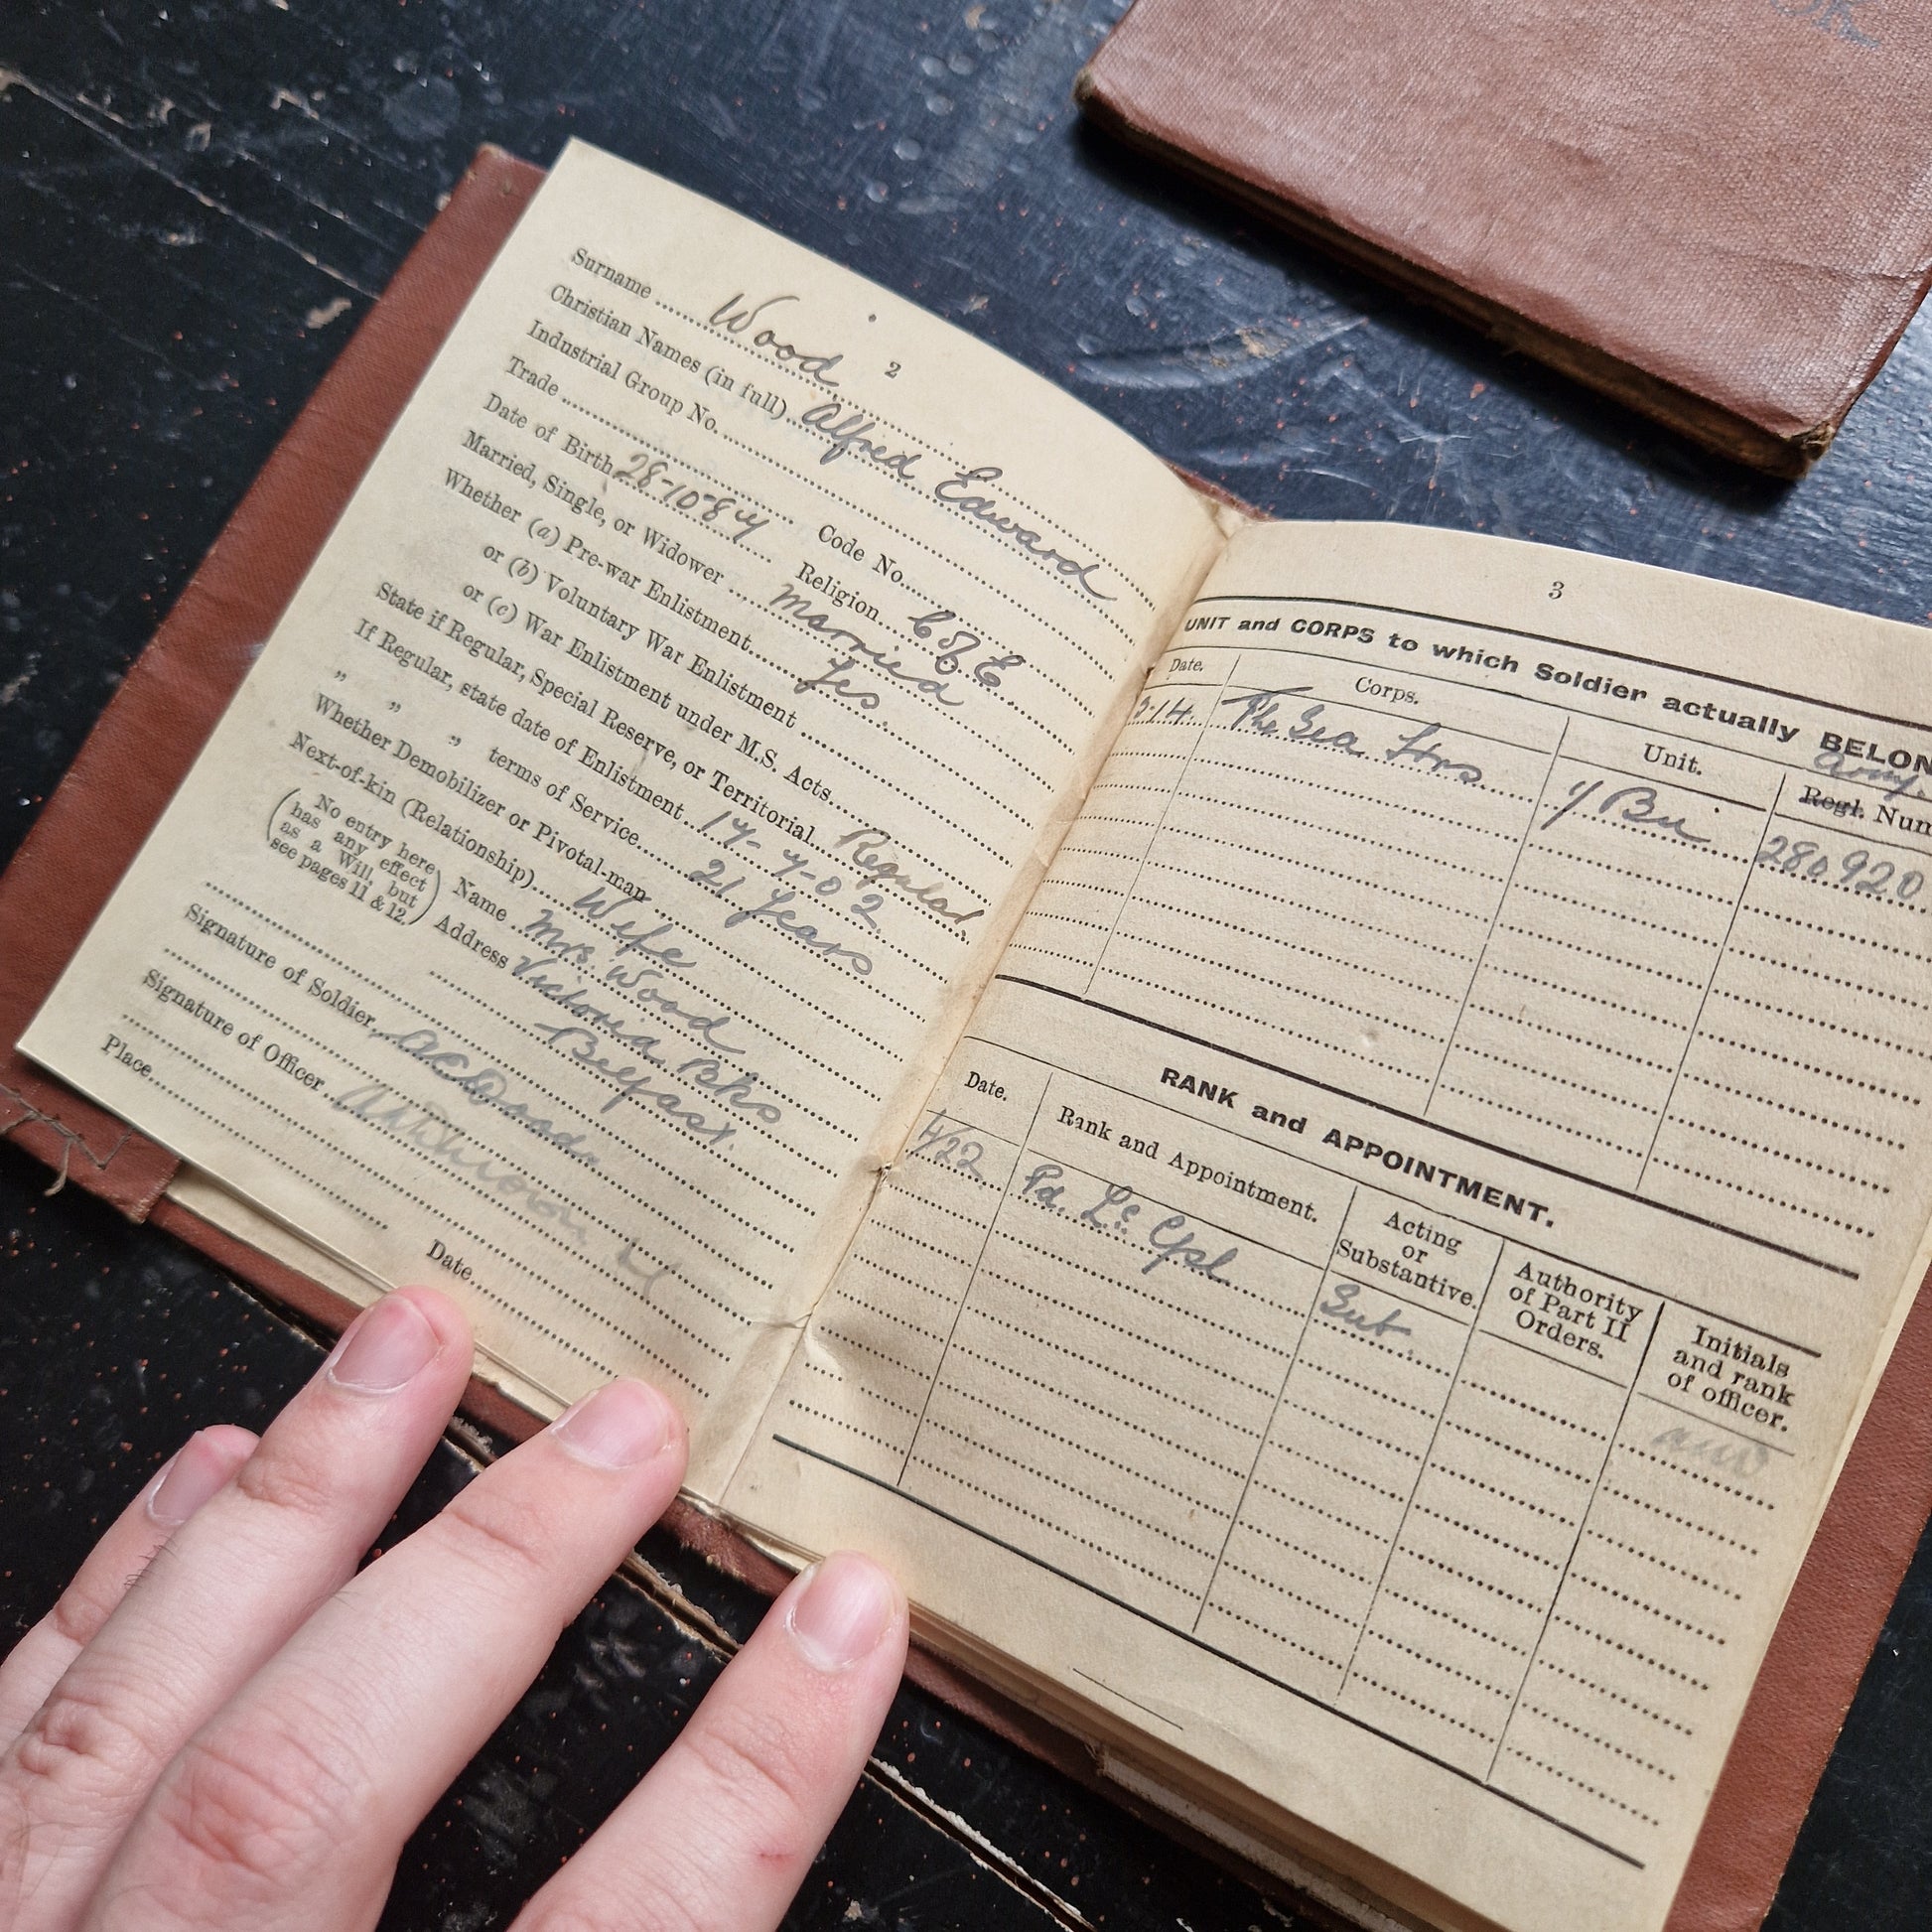 2
Surname Wood
Christian Names (in full) Alfred Edward
Industrial Group No.
Trade Code No.
Date of Birth 28-10-84 Religion C of E
Married, Single, or Widower Married
Whether (a) Pre-war Enlistment Yes.
or (b) Voluntary War Enlistment
or (c) War Enlistment under M.S. Acts
State if Regular, Special Reserve, or Territorial Regular.
If Regular, state date of Enlistment 14-4-02
„ „ „ terms of Service 21 years
Whether Demobilizer or Pivotal-man
Next-of-kin (Relationship) Wife
(No entry here has any effect as a Will, but see pages 11 & 12.)
Name Mrs. Wood
Address Victoria Bks
Belfast.
Signature of Soldier
Signature of Officer
Place
Date
3
UNIT and CORPS to which Soldier actually BELON
Date. Corps. Unit. Army. Regl. Num
The Sea Hrs 280920
RANK and APPOINTMENT.
Date. Rank and Appointment. Acting or Substantive. Authority of Part II Orders. Initials and rank of officer.
4/22 Pd. Lc Cpl Sub.